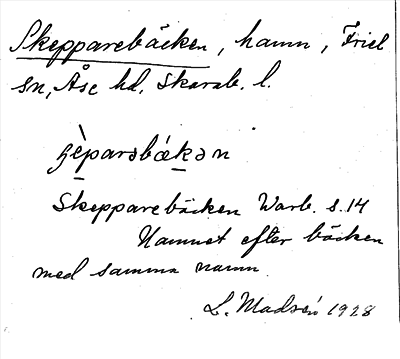 Skepparebäcken, hamn, Friel
sn, Åse hd, Skarab. l.
ʂèparabǽkən
Skepparebäcken Warb. s. 14
Namnet efter bäcken
med samma namn.
L. Madsén 1928